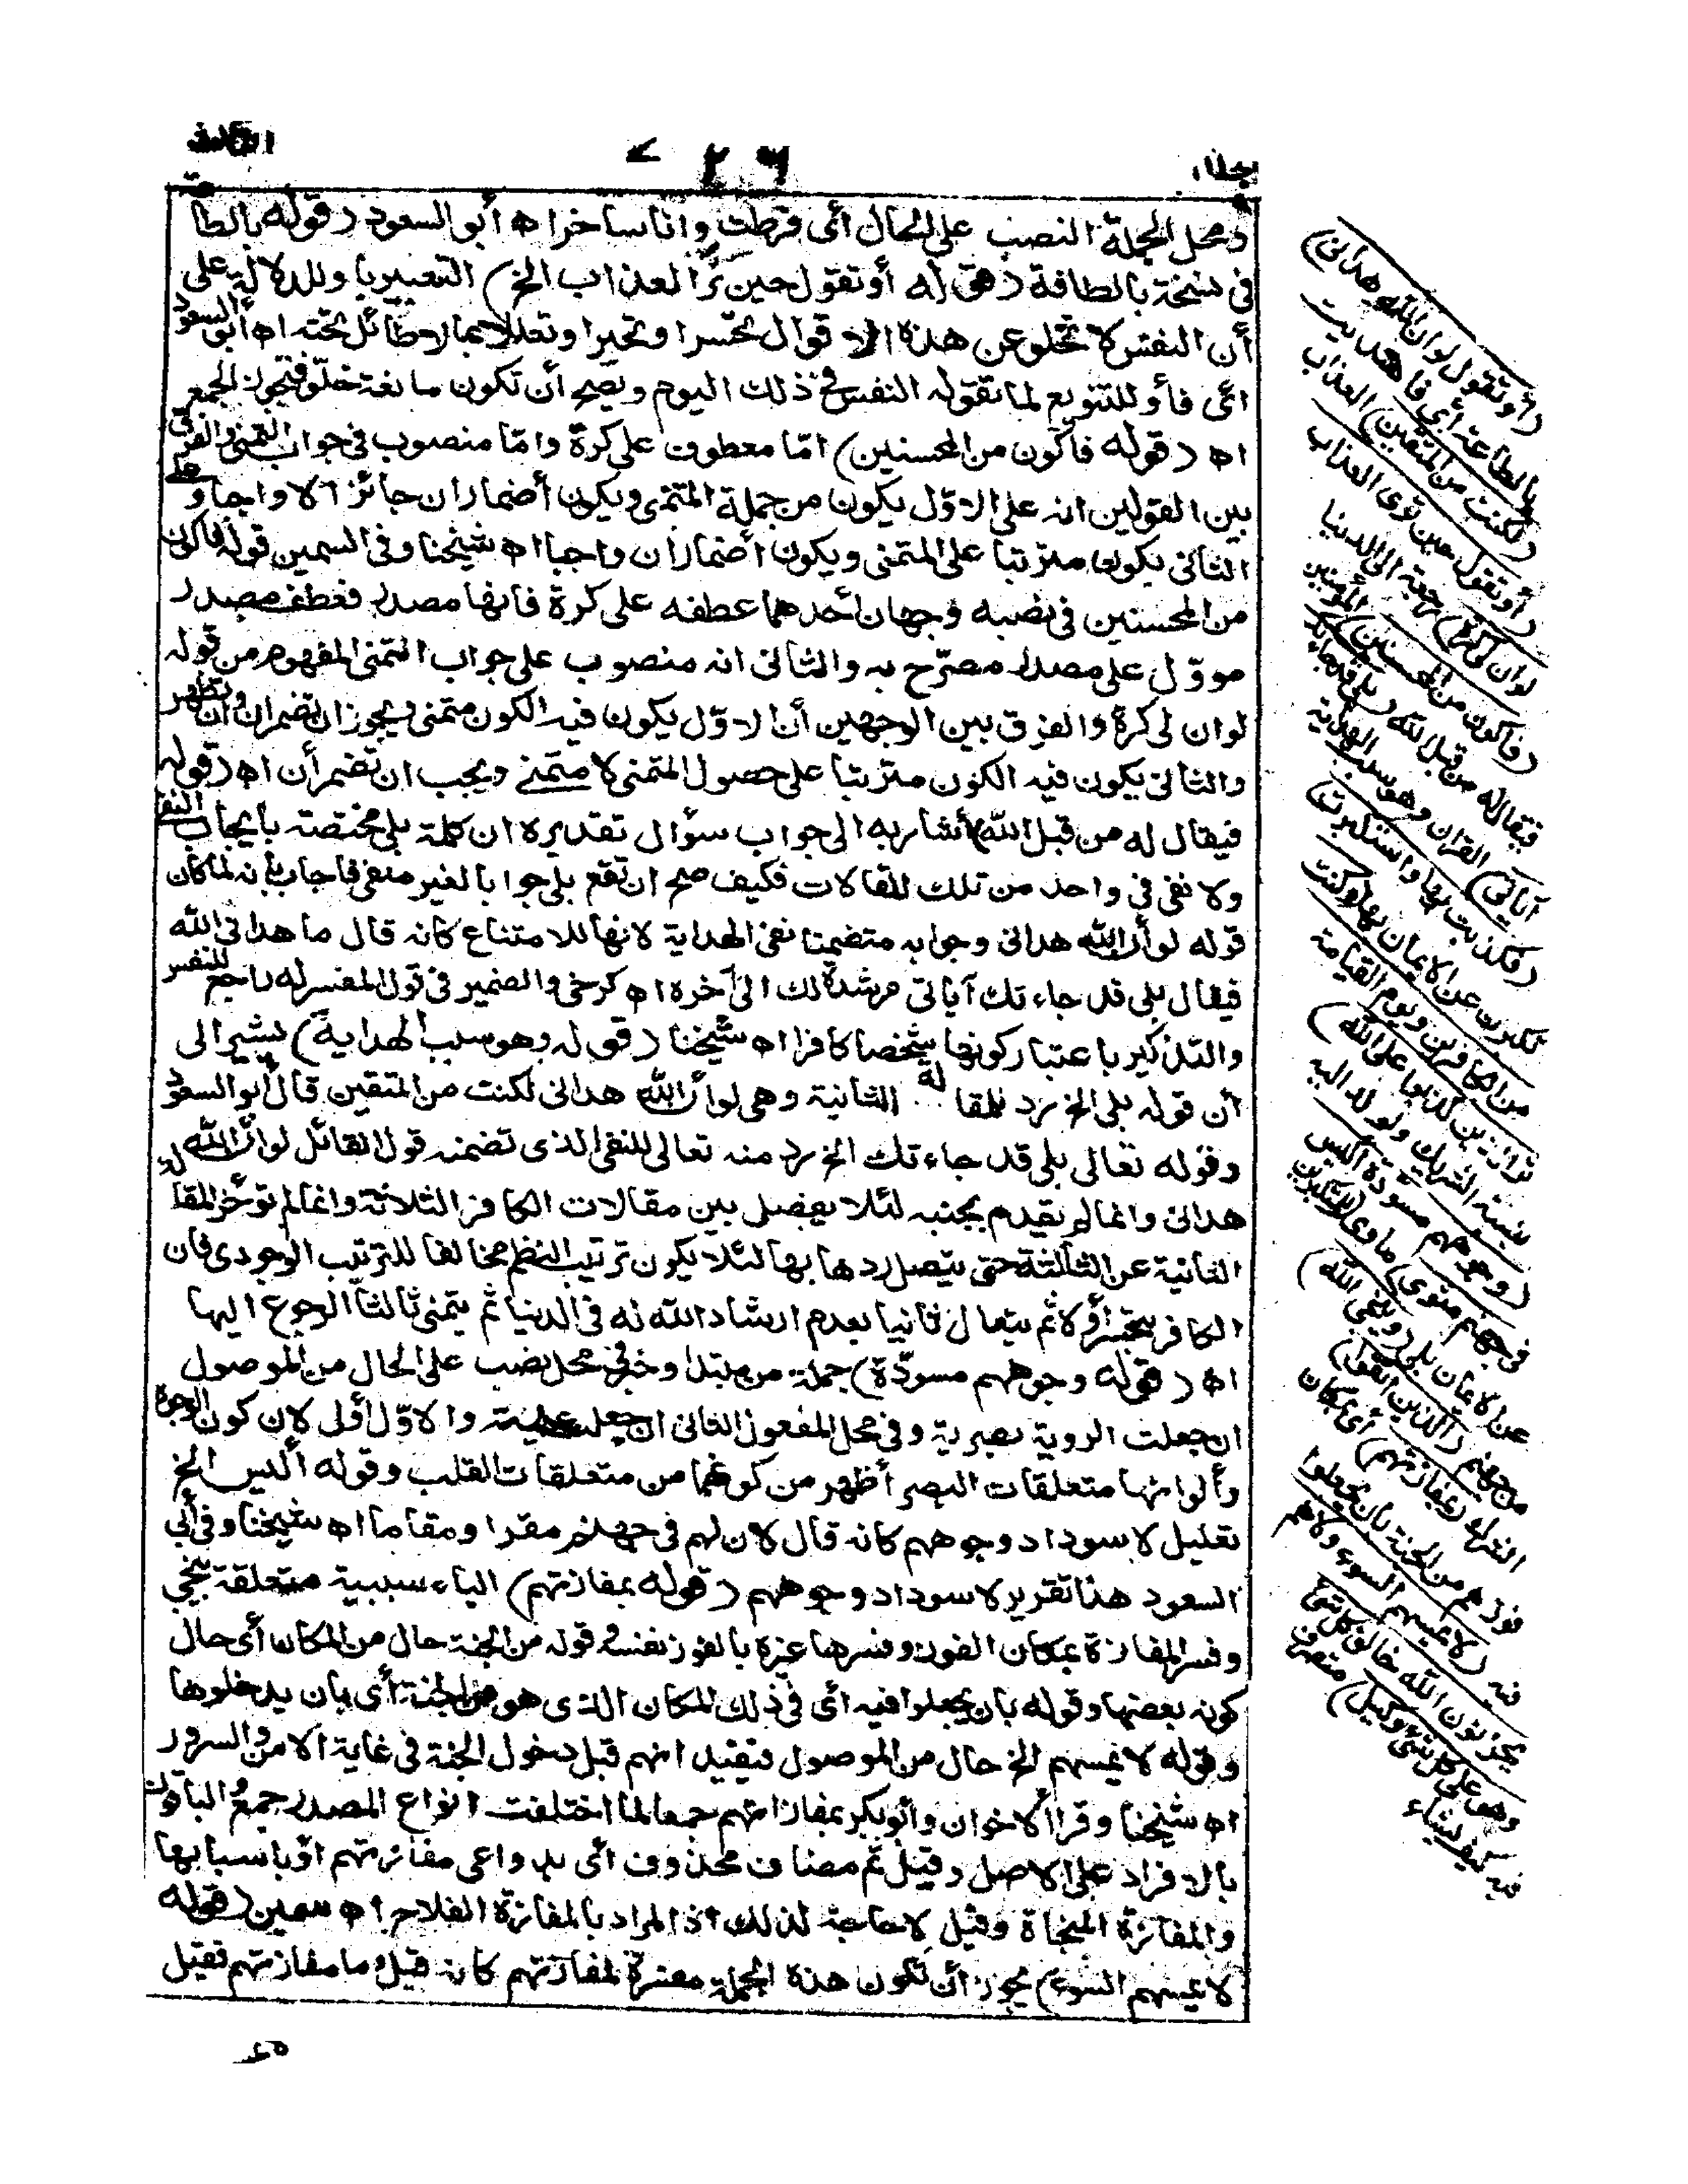 ومحل الجملة النصب على الحال أى فرطت وانا ساخر اه أبو السعود (قوله بالطاعة
فى نسخة بالطافة (قوله أو تقول حين ترى العذاب الخ) التعبير باو للدلالة على
أن النفس لا تخلو عن هذه الاقوال تحسرا وتحيرا وتعللا بما لا طائل تحته اه أبو السعود
اى فأو للتنويع لما تقوله النفس فى ذلك اليوم ويصح أن تكون مانعة خلو فتجوز الجمع
اه (قوله فأكون من المحسنين) امّا معطوف على كرة وامّا منصوب فى جواب التمنى والفرق
بين القولين انه على الاوّل يكون من جملة المتمنى ويكون أضمار ان جائزا لا واجبا وعلى
الثانى يكون مترتبا على المتمنى ويكون اضمار ان واجبا اه شيخنا وفى السمين قوله فاكون
من المحسنين فى نصبه وجهان أحدهما عطفه على كرة فانها مصدر فعطف مصدر
مووّل على مصدر مصرّح به والثانى انه منصوب على جواب التمنى المفهوم من قوله
لو ان لى كرة والفرق بين الوجهين أن الاوّل يكون فيه الكون متمنى ويجوز ان تضمر ان وأن تظهر
والثانى يكون فيه الكون مترتبا على حصول المتمنى لا متمنى ويجب ان تضمر أن اه (قوله
فيقال له من قبل الله) أشار به الى جواب سؤال تقديره ان كلمة بلى مختصة بايجاب النفى
ولا نفى فى واحد من تلك المقالات فكيف صح ان تقع بلى جوابا لغير منفى فاجاب بأنه لما كان
قوله لو أن الله هدانى وجوابه متضمنا نفى الهداية لانها للامتناع كانه قال ما هدانى الله
فيقال بلى قد جاءتك آياتى مرشدة لك الى آخره اه كرخى والضمير فى قول المفسر له راجع للنفس
والتذكير باعتبار كونها شخصا كافرا اه شيخنا (قوله وهو سبب الهداية) يشير الى
أن قوله بلى الخ رد للمقالة الثانية وهى لو أن الله هدانى لكنت من المتقين قال أبو السعود
وقوله تعالى بلى قد جاءتك الخ رد منه تعالى للنفى الذى تضمنه قول القائل لو أن الله
هدانى وانما لم يقدم بجنبه لئلا يفصل بين مقالات الكافر الثلاثة وانما لم توخر المقالة
الثانية عن الثالثة حتى يتصل ردها بها لئلا يكون ترتيب النظم مخالفا للترتيب الوجودى فان
الكافر يتحسر أولا ثم يتعلل ثانيا بعدم ارشاد الله له فى الدنيا ثم يتمنى ثالثا الرجوع اليها
اه (قوله وجوههم مسودّة) جملة من مبتدا وخبر فى محل نصب على الحال من الموصول
ان جعلت الروية بصرية وفى محل المفعول الثانى ان جعلت علمية والاوّل أولى لان كون الوجوه
وألوانها متعلقات البصر أظهر من كونها من متعلقات القلب وقوله أليس الخ
تعليل لاسوداد وجوههم كانه قال لان لهم فى جهنم مقرا ومقاما اه شيخنا وفى أبى
السعود هذا تقرير لاسوداد وجوههم (قوله بمفازتهم) الباء سببية متعلقة بينجى
وفسر المفازة بمكان الفوز وفسرها غيره بالفوز نفسه قوله من الجنة حال من المكان أى حال
كونه بعضها وقوله بان يجعلوا فيه اى فى ذلك المكان الذى هو من الجنة أى بان يدخلوها
وقوله لا يمسهم الخ حال من الموصول فتفيد انهم قبل دخول الجنة فى غاية الامن والسرور
اه شيخنا وقرا الاخوان وأبو بكر بمفازاتهم جمعا لما اختلفت انواع المصدر جمع والباقون
بالافراد على الاصل وقيل ثم مضاف محذوف اى بدواعى مفازتهم أو باسبابها
والمفازة المنجاة وقيل لا حاجة لذلك اذ المراد بالمفازة الفلاح اه سمين (قوله
لا يمسهم السوء) يجوز أن تكون هذه الجملة مفسرة لمفازتهم كانه قيل وما مفازتهم فقيل
(أو تقول لو أن الله هدانى)
بالطاعة أى فاهتديت
(لكنت من المتقين) العذاب
(أو تقول حين ترى العذاب
لو ان لى كرة) رجعة الى الدنيا
(فأكون من المحسنين) المؤمنين
فيقال له من قبل الله (بلى قد جاءتك
آياتى) القرآن وهو سبب الهداية
(فكذبت بها واستكبرت)
تكبرت عن الايمان بها (وكنت
من الكافرين ويوم القيامة
ترى الذين كذبوا على الله)
بنسبة الشريك والولد اليه
(وجوههم مسودّة أليس
فى جهنم مثوى) ماوى (للمتكبرين)
عن الايمان بلى (وينجى الله)
من جهنم (الذين اتقوا)
الشرك (بمفازتهم) أى بمكان
فوزهم من الجنة بان يجعلوا
فيه (لا يمسهم السوء ولا هم
يحزنون الله خالق كل شئ
وهو على كل شئ وكيل) متصرف
فيه كيف يشاء